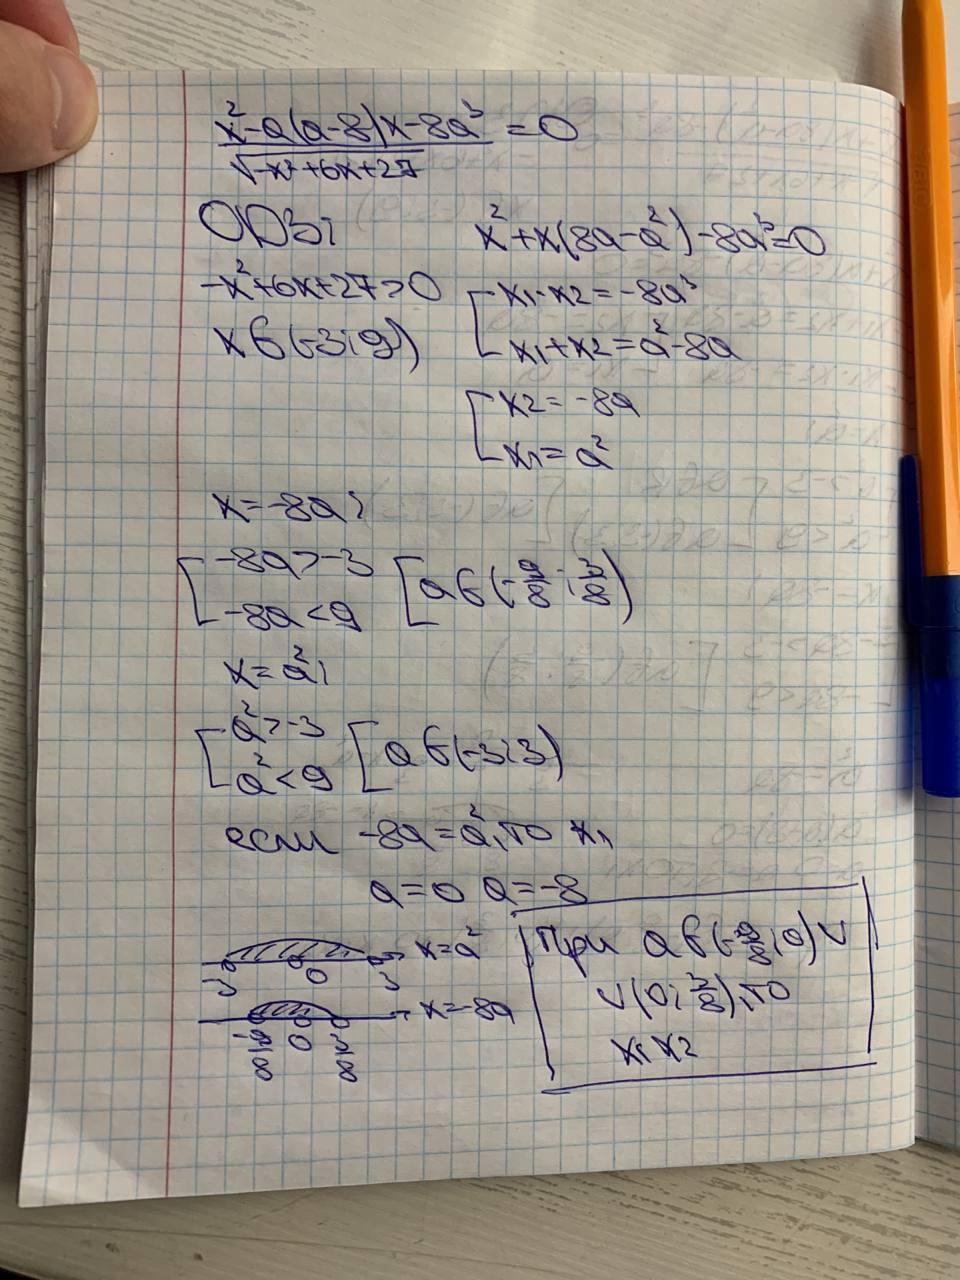 x²-a(a-8)x-8a³ = 0
√-x²+6x+27
ОДЗ:
x²+x(8a-a²)-8a³=0
-x²+6x+27>0
x1·x2=-8a³
xϵ(-3;9)
x1+x2=a²-8a
x2=-8a
x1=a²
x=-8a:
-8a>-3
aϵ(-9/8;3/8)
-8a<9
x=a²:
a²>-3
a²<9
aϵ(-3;3)
если -8a=a², то x1
a=0 a=-8
x=a²
-3 0 3
x=-8a
-9/8 0 3/8
При aϵ(-9/8;0)∪
∪(0;3/8), то
x1 x2